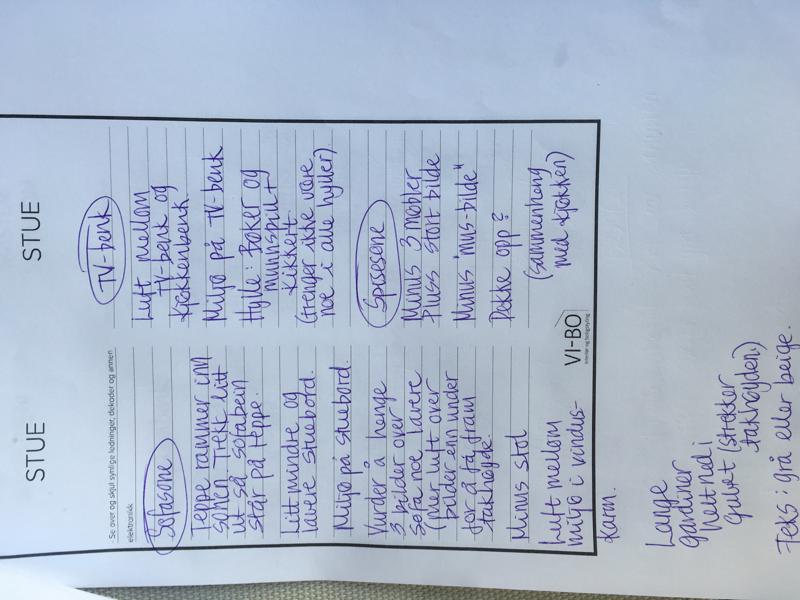 STUE
Se over og skjul synlige ledninger, dekoder og annen
elektronikk
Sofasone
Teppe rammer inn
sonen. Trekk litt
ut så sofabein
står på teppe.
Litt mindre og
lavere stuebord.
Miljø på stuebord.
Vurder å henge
3 bilder over
sofa noe lavere
(mer luft over
bilder enn under
for å få fram
takhøyde
Minus stol
Luft mellom
miljø i vindus-
karm.
STUE
TV-benk
Luft mellom
TV-benk og
kjøkkenbenk
Miljø på TV-benk
Hylle: Bøker og
munnspill +
kikkert
(trenger ikke være
noe i alle hyller)
Spisesone
Minus 3 møbler
Pluss stort bilde
Minus "mus-bilde"
Dekke opp?
(sammenheng
med kjøkken)
VI-BO
Lange
gardiner
helt ned i
gulvet (strekker
takhøyden)
Feks: grå eller beige.